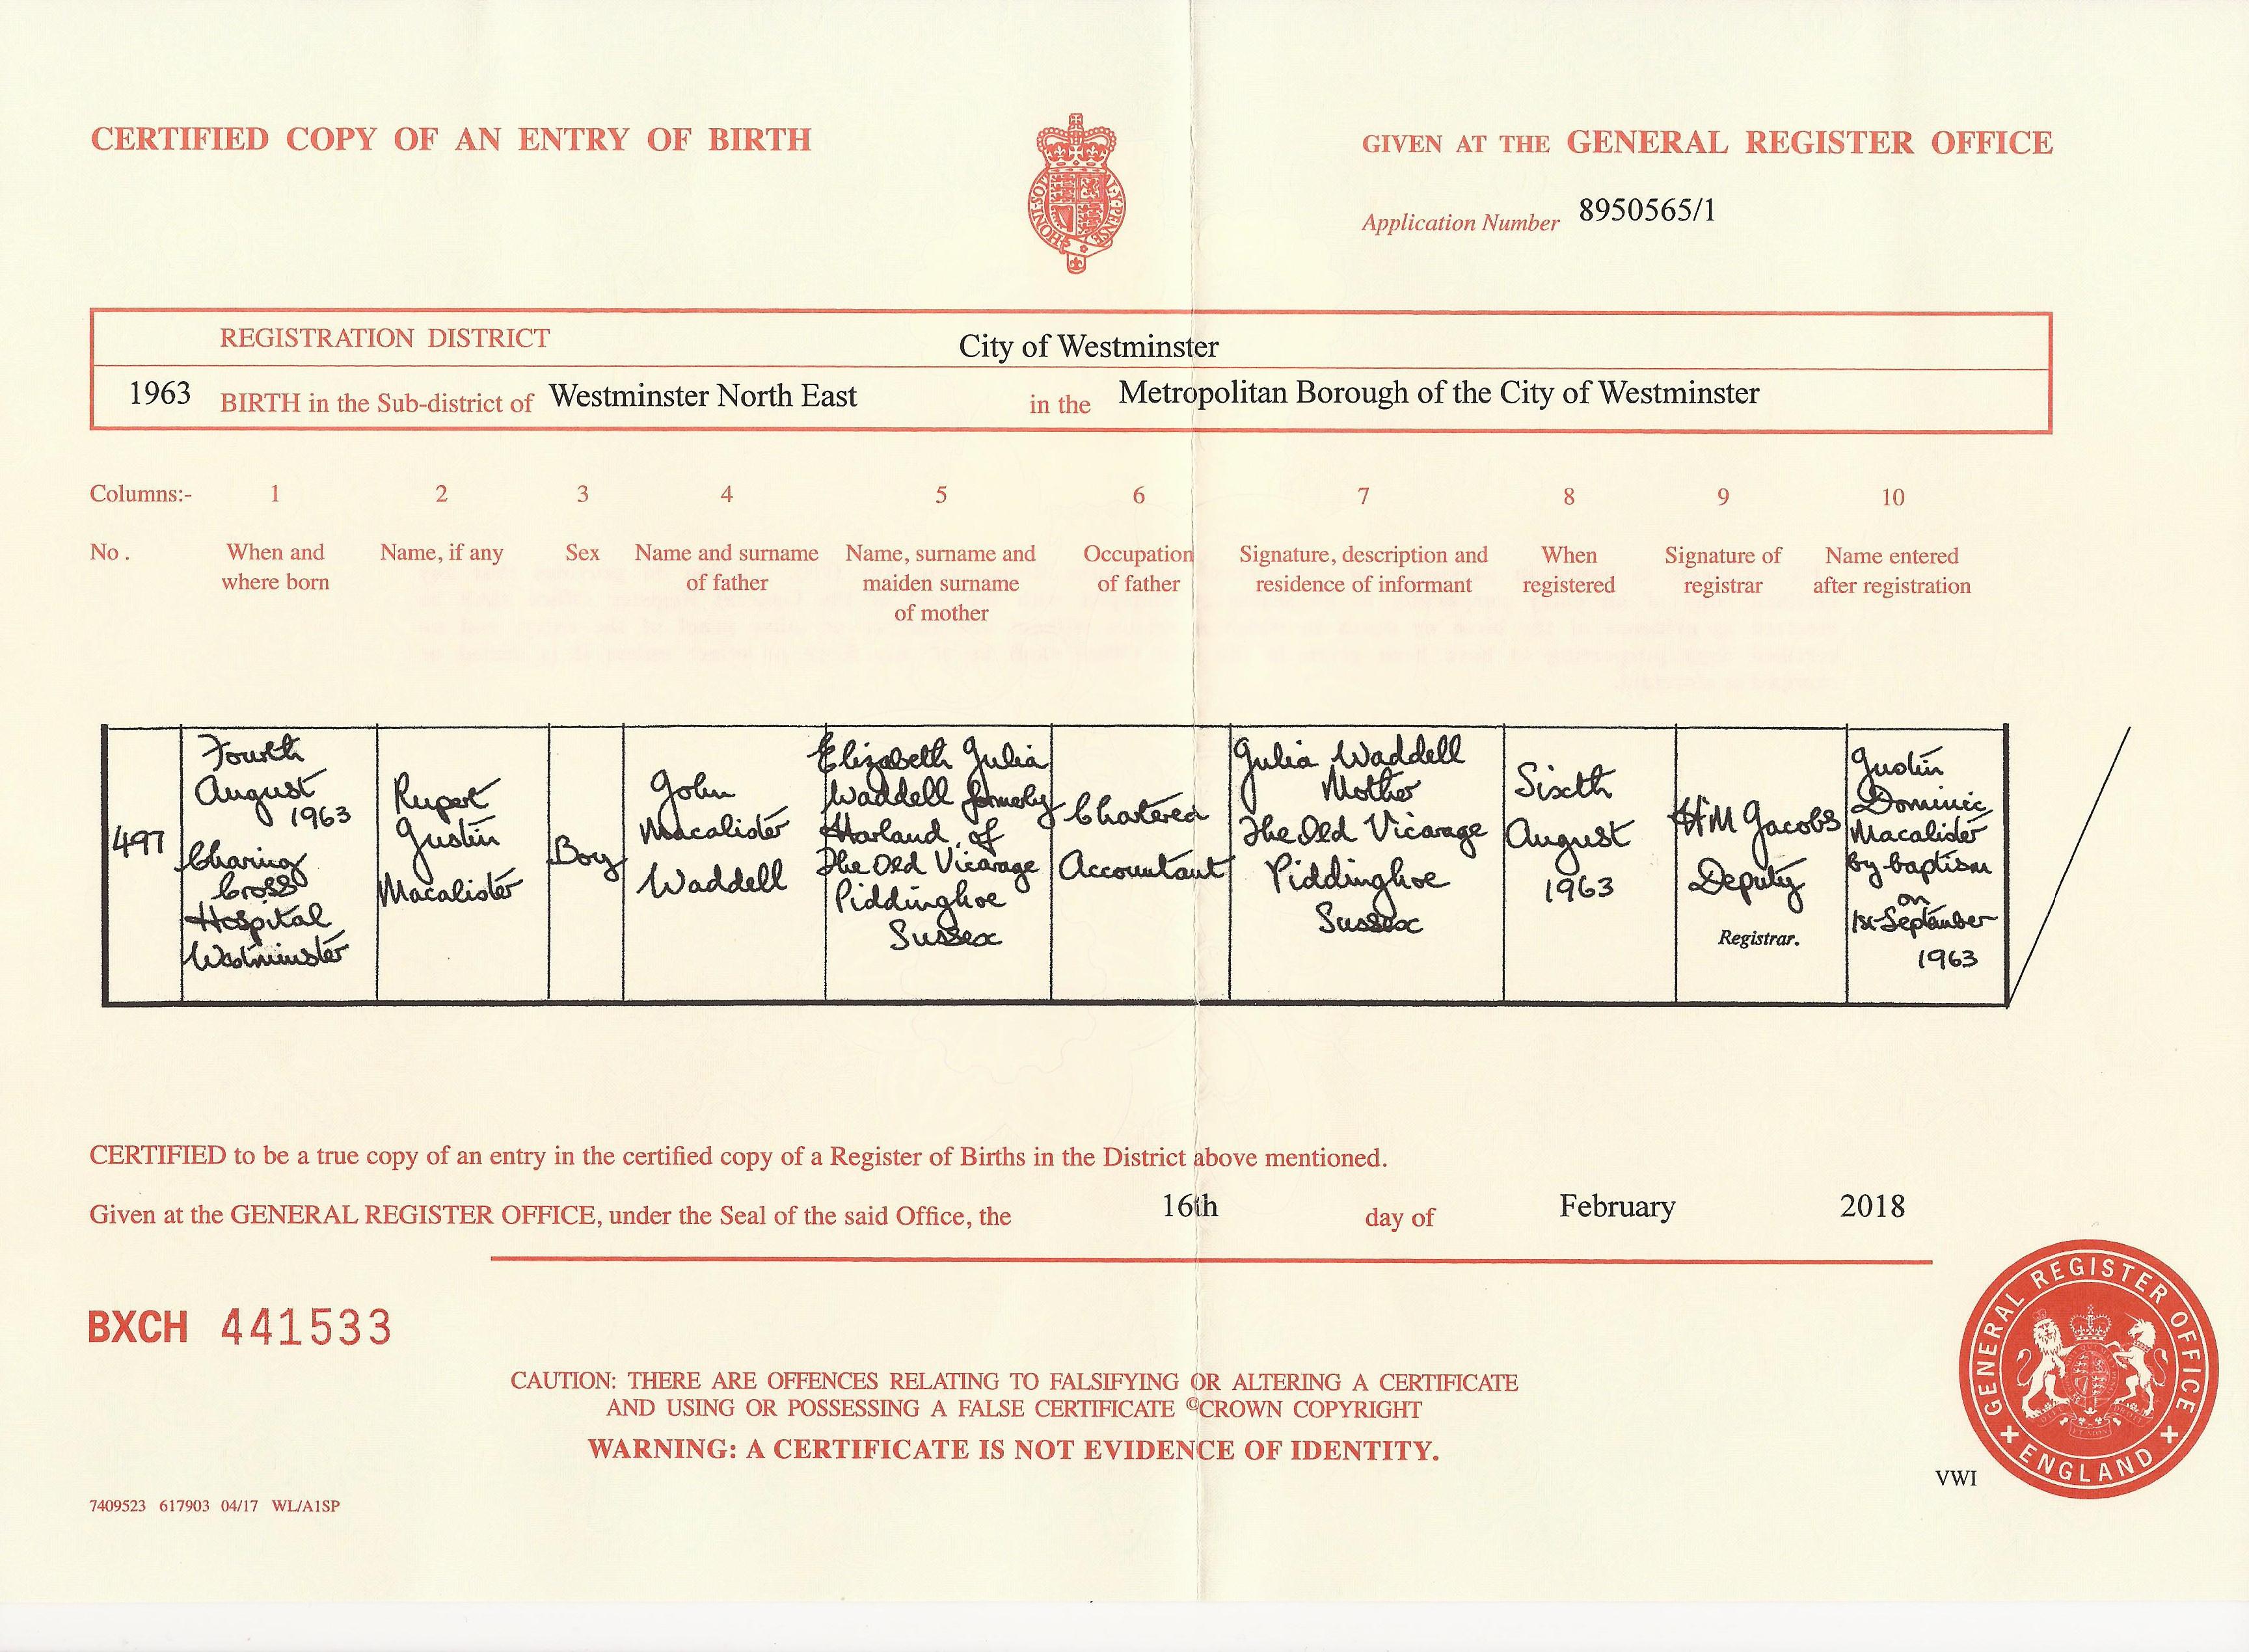 CERTIFIED COPY OF AN ENTRY OF BIRTH
GIVEN AT THE GENERAL REGISTER OFFICE
Application Number 8950565/1
REGISTRATION DISTRICT City of Westminster
1963 BIRTH in the Sub-district of Westminster North East in the Metropolitan Borough of the City of Westminster
Columns:- 1 2 3 4 5 6 7 8 9 10
No.
When and
where born
Name, if any
Sex
Name and surname
of father
Name, surname and
maiden surname
of mother
Occupation
of father
Signature, description and
residence of informant
When
registered
Signature of
registrar
Name entered
after registration
497
Fourth
August
1963
Charing
Cross
Hospital
Westminster
Rupert
Justin
Macalister
Boy
John
Macalister
Waddell
Elizabeth Julia
Waddell formerly
Harland, of
The Old Vicarage
Piddinghoe
Sussex
Chartered
Accountant
Julia Waddell
Mother
The Old Vicarage
Piddinghoe
Sussex
Sixth
August
1963
HM Jacobs
Deputy
Registrar.
Justin
Dominic
Macalister
by baptism
on
1st September
1963
CERTIFIED to be a true copy of an entry in the certified copy of a Register of Births in the District above mentioned.
Given at the GENERAL REGISTER OFFICE, under the Seal of the said Office, the 16th day of February 2018
BXCH 441533
CAUTION: THERE ARE OFFENCES RELATING TO FALSIFYING OR ALTERING A CERTIFICATE
AND USING OR POSSESSING A FALSE CERTIFICATE ©CROWN COPYRIGHT
WARNING: A CERTIFICATE IS NOT EVIDENCE OF IDENTITY.
GENERAL REGISTER OFFICE
ENGLAND
VWI
7409523 617903 04/17 WL/A1SP